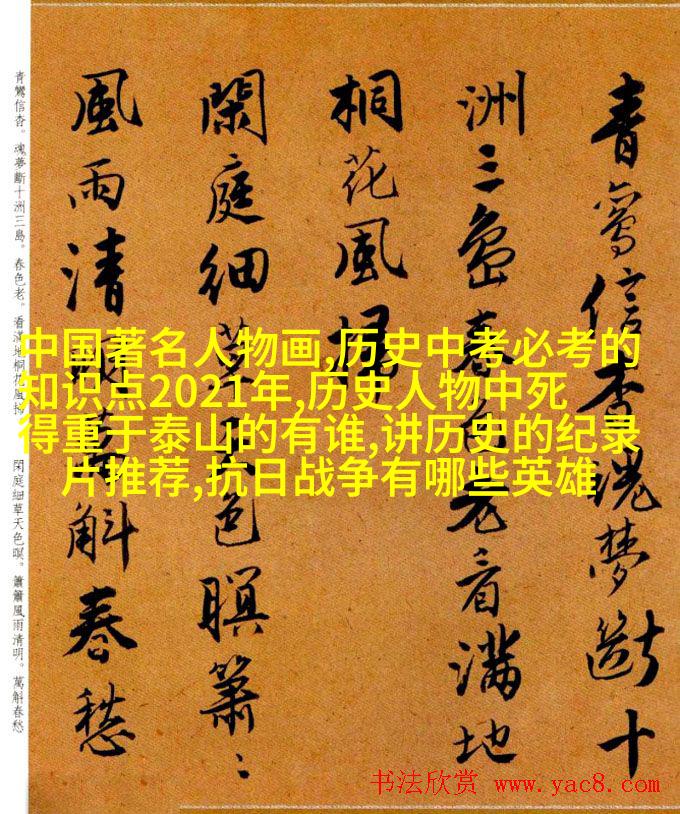 青鸞信杳魂夢斷十
洲三島春色老看滿地
桐花風掃
閑庭細草天色暝簫〻
風雨清明萬斛春愁
青鸞信杳。魂夢斷十洲三島。春色老。看滿地桐花風掃。
閑庭細草天色暝。簫簫風雨清明。萬斛春愁
中国著名人物画,历史中考必考的
知识点2021年,历史人物中死
得重于泰山的有谁,讲历史的纪录
片推荐,抗日战争有哪些英雄
书法欣赏 www.yac8.com